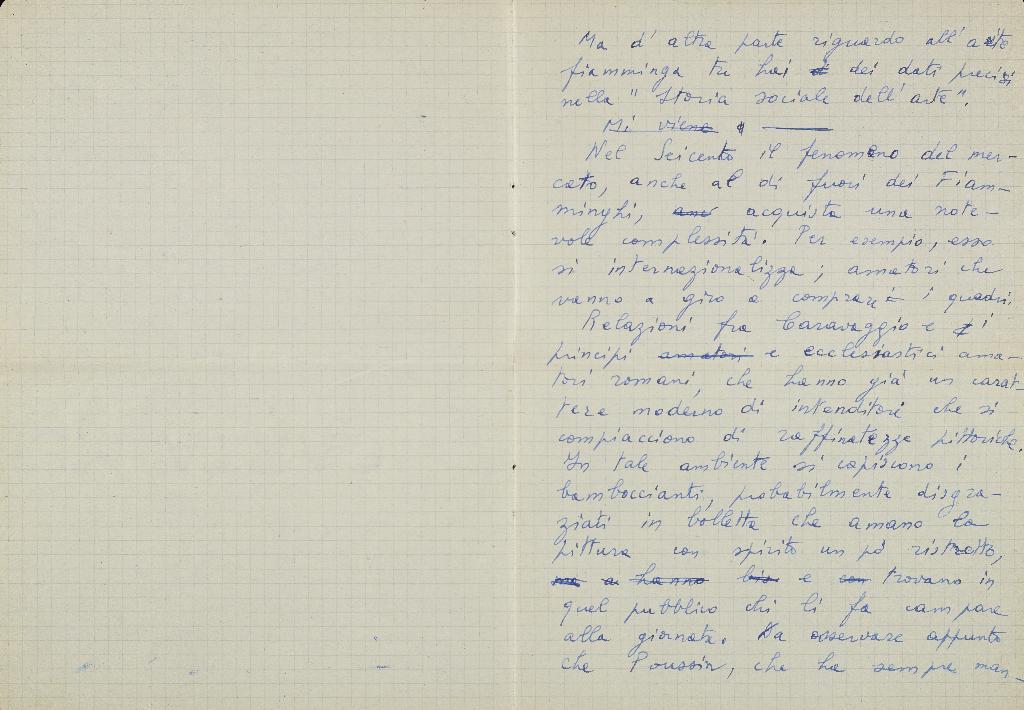 Ma d'altra parte riguardo all'arte
fiamminga tu hai dei dati precisi
nella "Storia sociale dell'arte".
Mi viene
Nel Seicento il fenomeno del mer-
cato, anche al di fuori dei Fiam-
minghi, acquista una note-
vole complessità. Per esempio, esso
si internazionalizza; amatori che
vanno a giro a comprare i quadri.
Relazioni fra Caravaggio e i
principi amatori e ecclesiastici ama-
tori romani, che hanno già un carat-
tere moderno di intenditori che si
compiacciono di raffinatezze pittoriche.
In tale ambiente si capiscono i
bamboccianti, probabilmente disgra-
ziati in bolletta che amano la
pittura con spirito un pò ristretto,
ma a hanno bis e con trovano in
quel pubblico chi li fa campare
alla giornata. Da osservare appunto
che Poussin, che ha sempre man-